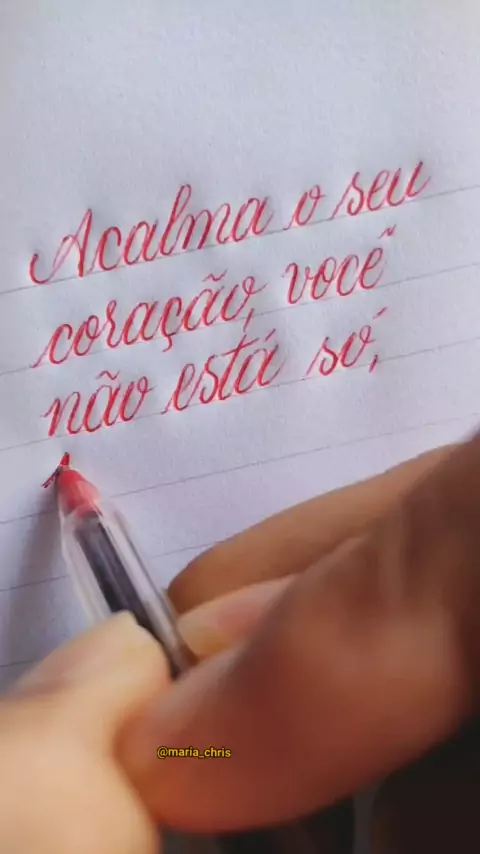 Acalma o seu
coração, você
não está só,
@maria_chris